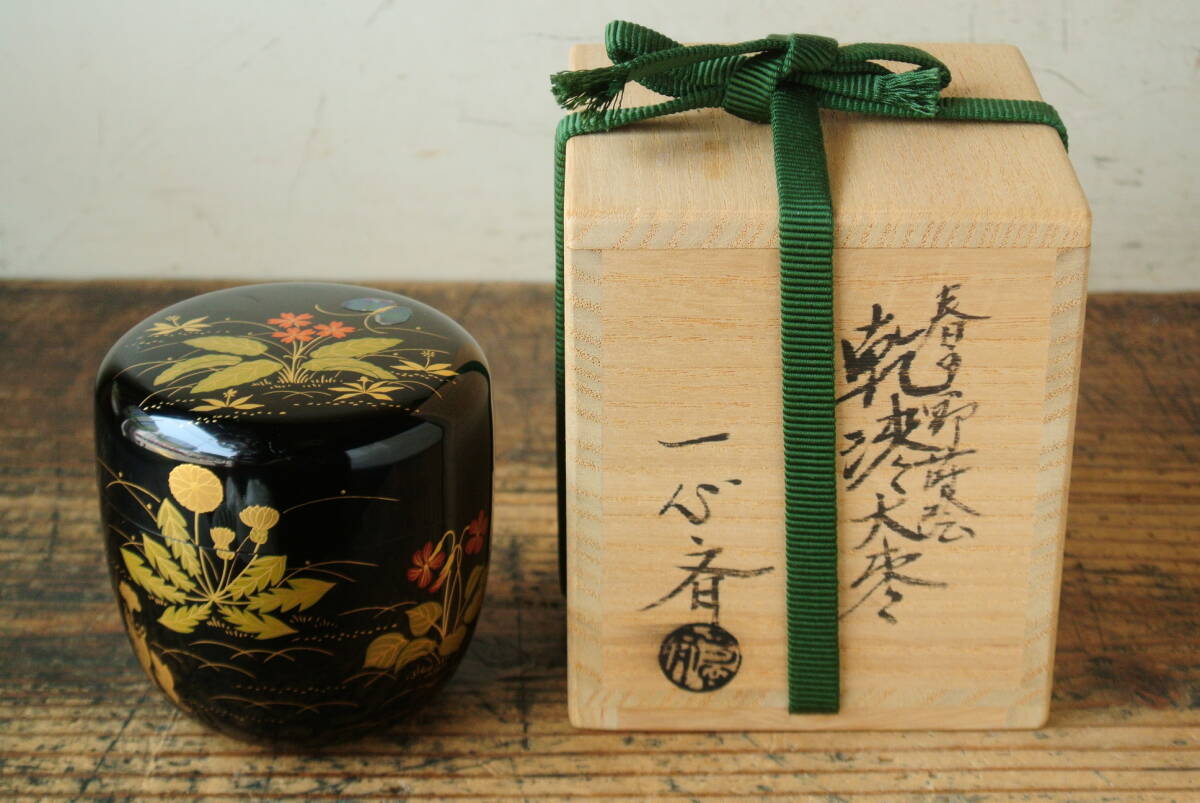 春野蒔絵
乾漆大棗
一心斎